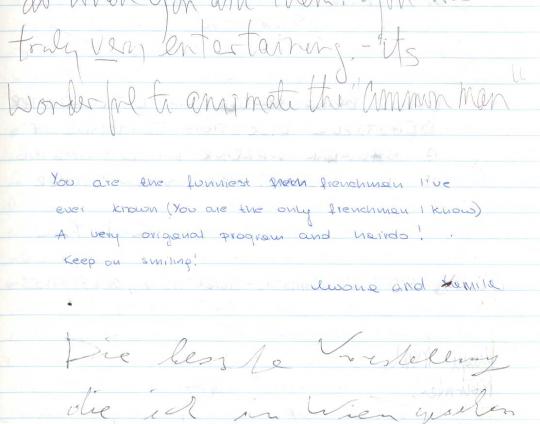 as when you are them. you are
truly very entertaining. - its
wonderful to annimate the "common man"
You are the funniest frenchman I've
ever known (You are the only frenchman I know)
A very original program and hairdo!
Keep on smiling!
Iwona and Kamila
Die besste Vorstellung
die ich in Wien gesehen